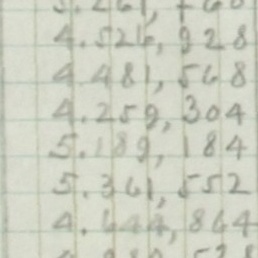 4.526,928
4.481,568
4.259,304
5.189,184
5.361,552
4.644,864